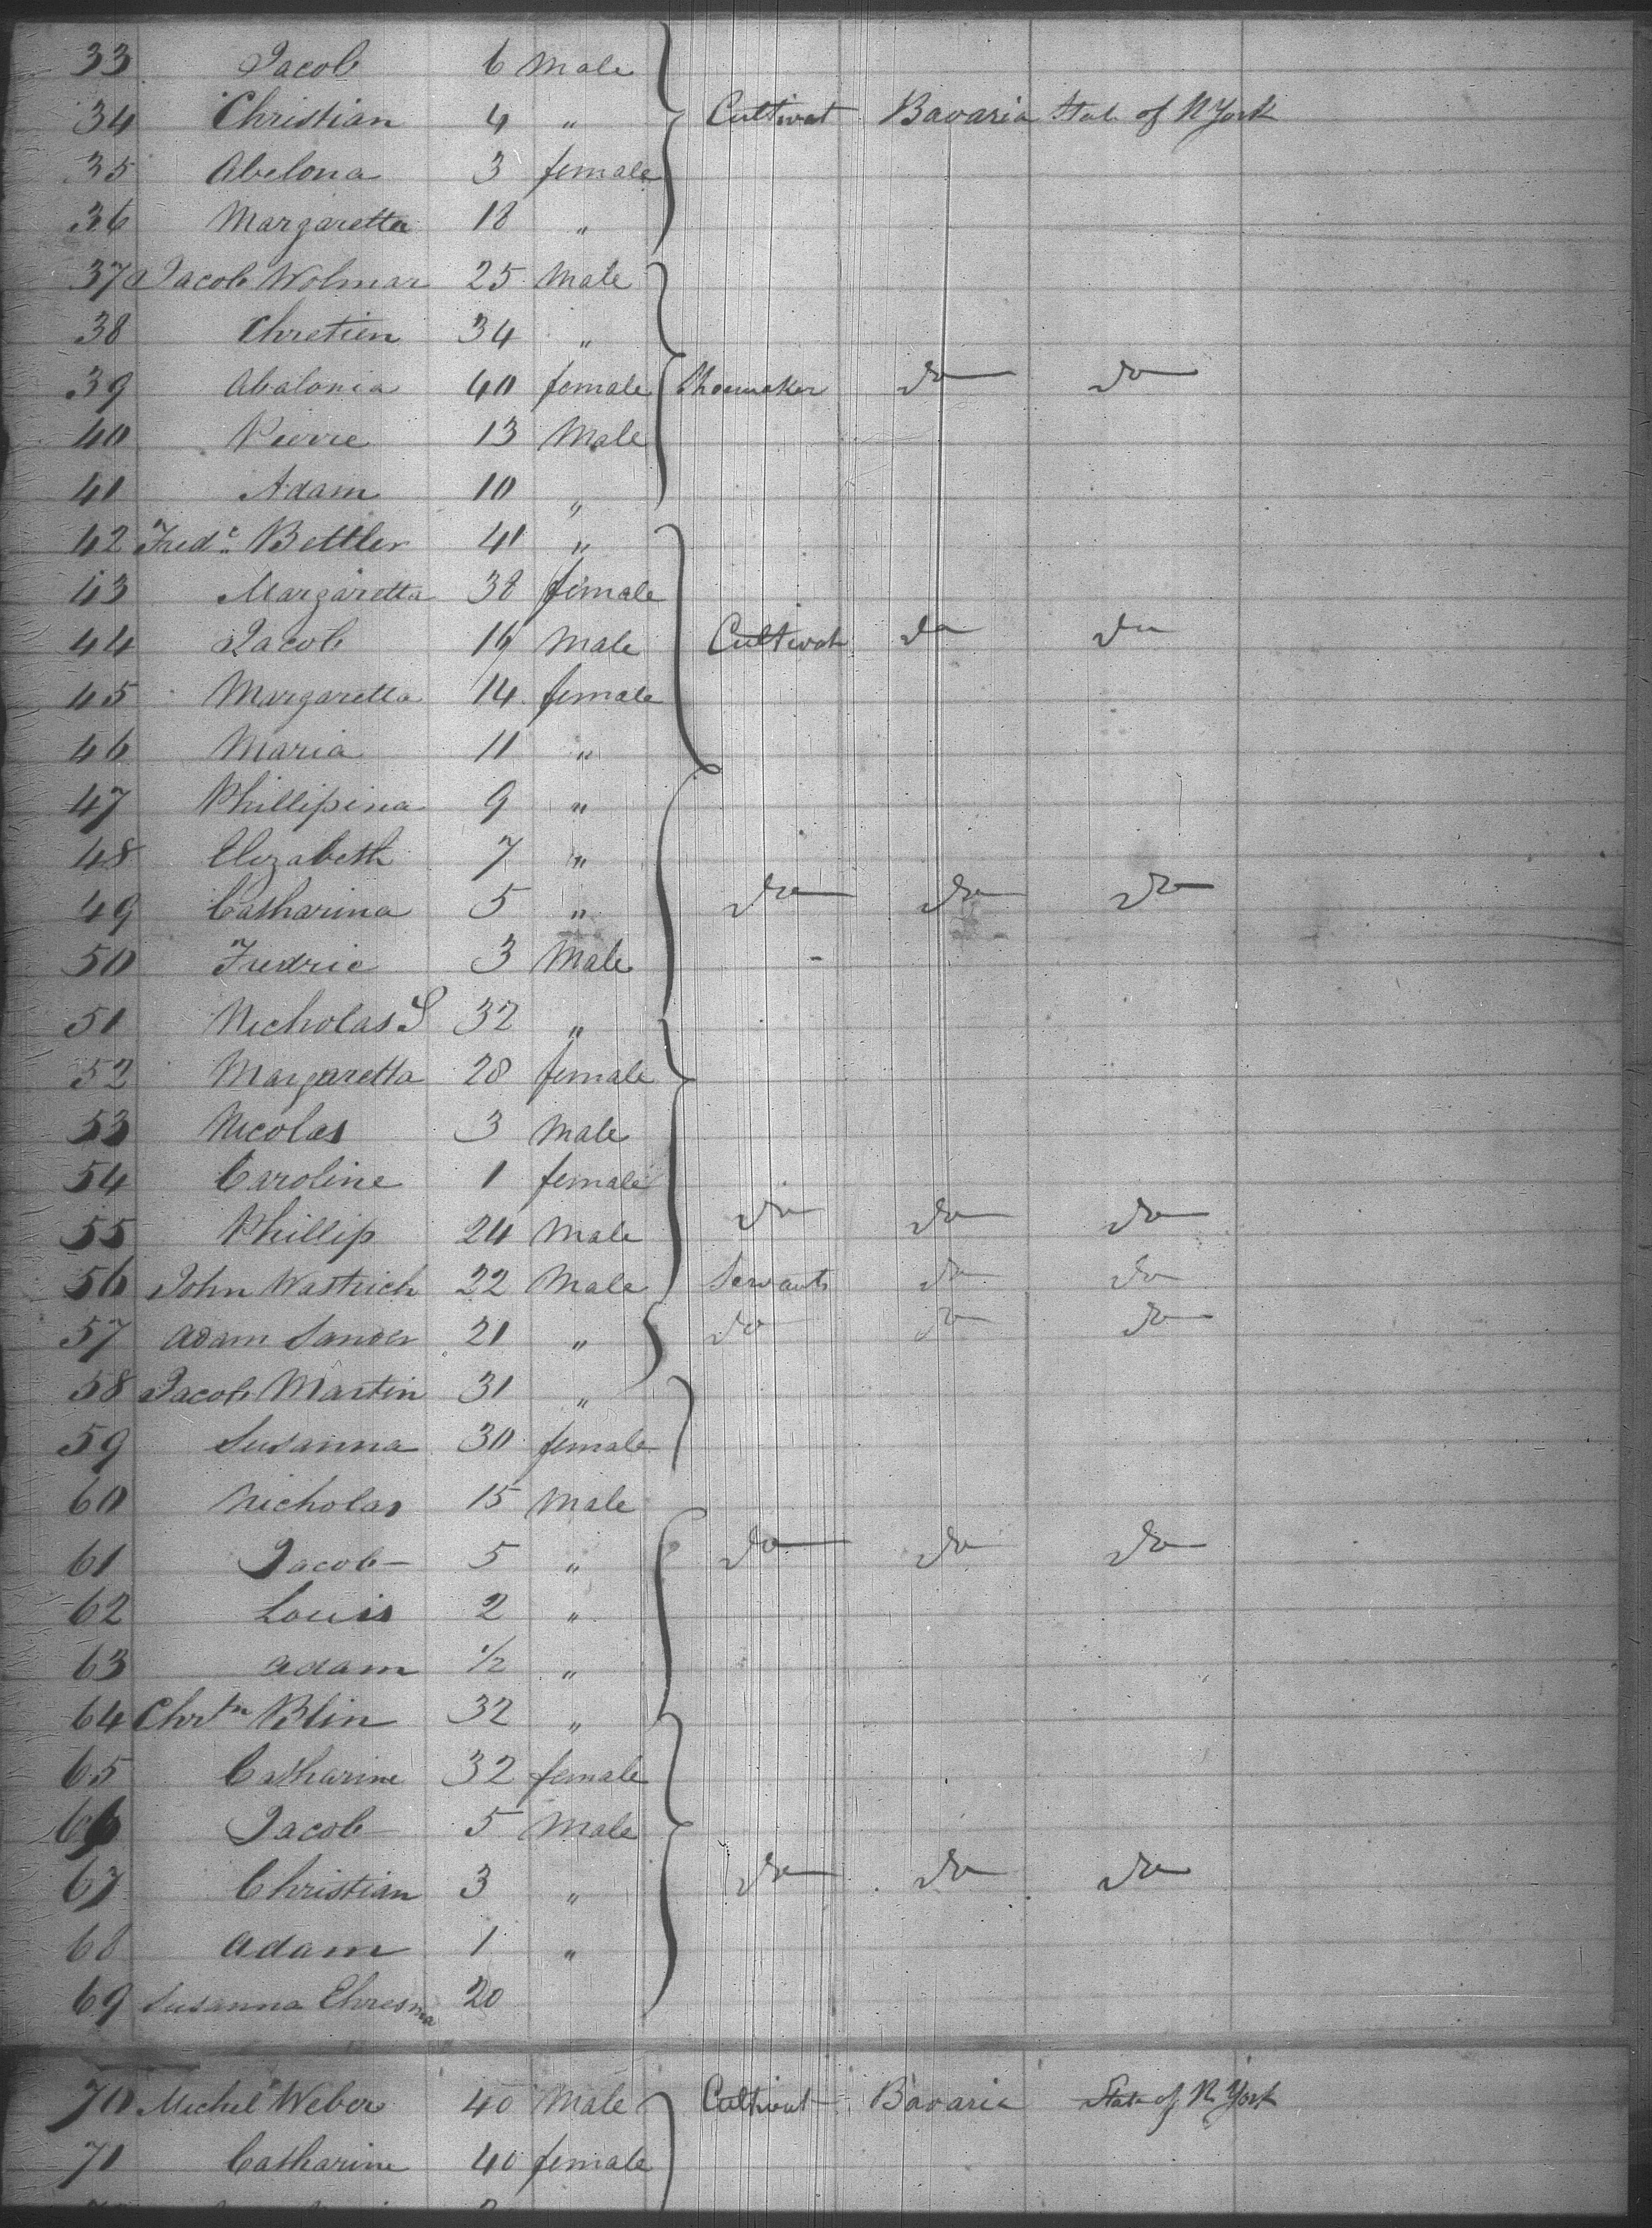 33 Jacob 6 Male
34 Christian 4 " Cultivat Bavaria State of N York
35 Abelona 3 female
36 Margaretta 18 "
37 Jacob Wolmar 25 Male
38 Chretien 34 "
39 Abalonia 40 female Shoemaker do do
40 Pierre 13 Male
41 Adam 10 "
42 Fredc Bettler 41 "
43 Margaretta 38 female
44 Jacob 16 Male Cultivat do do
45 Margaretta 14 female
46 Maria 11 "
47 Phillipina 9 "
48 Elizabeth 7 "
49 Catharina 5 " do do do
50 Fredric 3 Male
51 Nicholas S 32 "
52 Margaretta 28 female
53 Nicolas 3 Male
54 Caroline 1 female
55 Phillip 24 Male do do do
56 John Wastrich 22 Male Servants do do
57 Adam Sander 21 " do do do
58 Jacob Martin 31 "
59 Susanna 30 female
60 Nicholas 15 Male
61 Jacob 5 " do do do
62 Louis 2 "
63 Adam 1/2 "
64 Chrtn Blin 32 "
65 Catharine 32 female
66 Jacob 5 Male
67 Christian 3 " do do do
68 Adam 1 "
69 Susanna Ehresma 20
70 Michel Weber 40 Male Cultivat Bavaria State of N York
71 Catharine 40 female